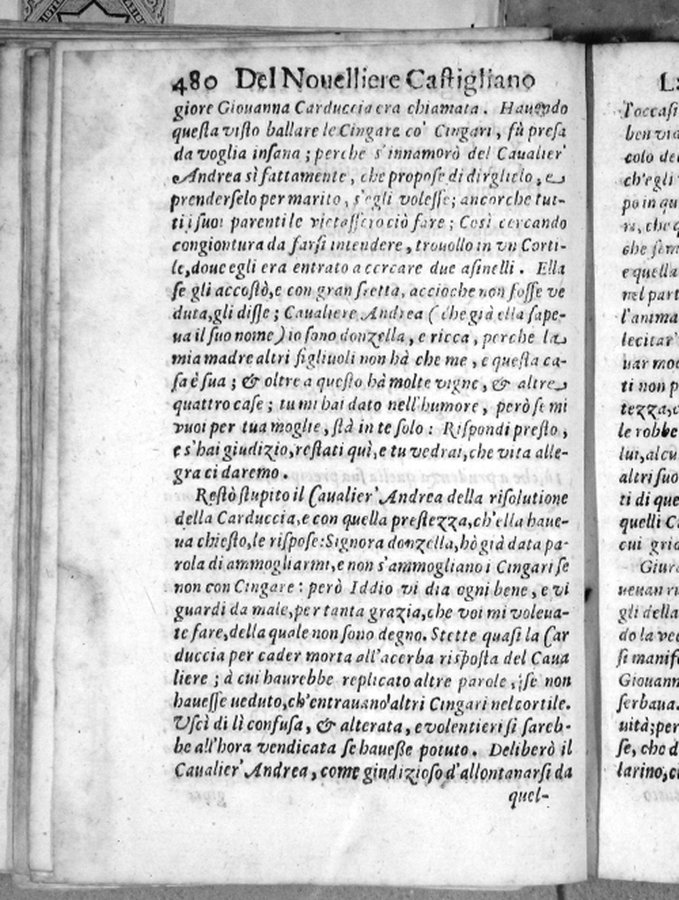 480 Del Nouelliere Castigliano
giore Giouanna Carduccia era chiamata. Hauendo
questa visto ballare le Cingare co' Cingari, fù presa
da voglia insana; perche s'innamorò del Caualier'
Andrea sì fattamente, che propose di dirglielo, e
prenderselo per marito, s'egli volesse; ancorche tut-
ti i suoi parenti le vietassero ciò fare; Così cercando
congiontura da farsi intendere, trouollo in vn Corti-
le, doue egli era entrato a cercare due asinelli. Ella
se gli accostò, e con gran fretta, accioche non fosse ve
duta, gli disse; Caualiere Andrea (che già ella sape-
ua il suo nome) io sono donzella, e ricca, perche la
mia madre altri figliuoli non hà che me, e questa ca-
sa è sua; & oltre a questo hà molte vigne, & altre
quattro case; tu mi hai dato nell'humore, però se mi
vuoi per tua moglie, stà in te solo: Rispondi presto,
e s'hai giudizio, restati quì, e tu vedrai, che vita alle-
gra ci daremo.
Restò stupito il Caualier' Andrea della risolutione
della Carduccia, e con quella prestezza, ch'ella haue-
ua chiesto, le rispose: Signora donzella, hò già data pa-
rola di ammogliarmi, e non s'ammogliano i Cingari se
non con Cingare: però Iddio vi dia ogni bene, e vi
guardi da male, per tanta grazia, che voi mi voleua-
te fare, della quale non sono degno. Stette quasi la Car
duccia per cader morta all'acerba risposta del Caua
liere; à cui haurebbe replicato altre parole, se non
hauesse ueduto, ch'entrauano altri Cingari nel cortile.
Vscì di lì confusa, & alterata, e volentieri si sareb-
be all'hora vendicata se hauesse potuto. Deliberò il
Caualier' Andrea, come giudizioso d'allontanarsi da
quel-
La
l'occasi
ben via
colo del
ch'egli
po in qu
ra, che q
che sem
e quella
nel part
l'anima
lecitar'
uar mod
ti non p
tezza, c
le robbe
lui, alcu
altri suo
ti di que
quelli C
cui grid
Giura
ueuan ru
gli della
do la ved
si manife
Giouann
serbaua.
uità; per
se, che d
larino, c